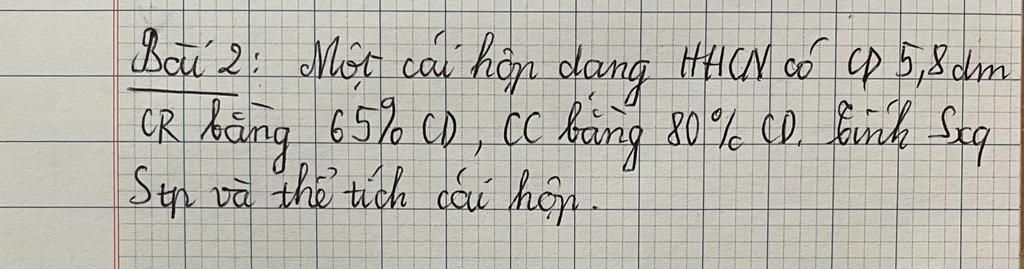 Bài 2: Một cái hộp dạng HHCN có CD 5,8dm
CR bằng 65% CD, CC bằng 80% CD. Tính Sxq
Stp và thể tích cái hộp.